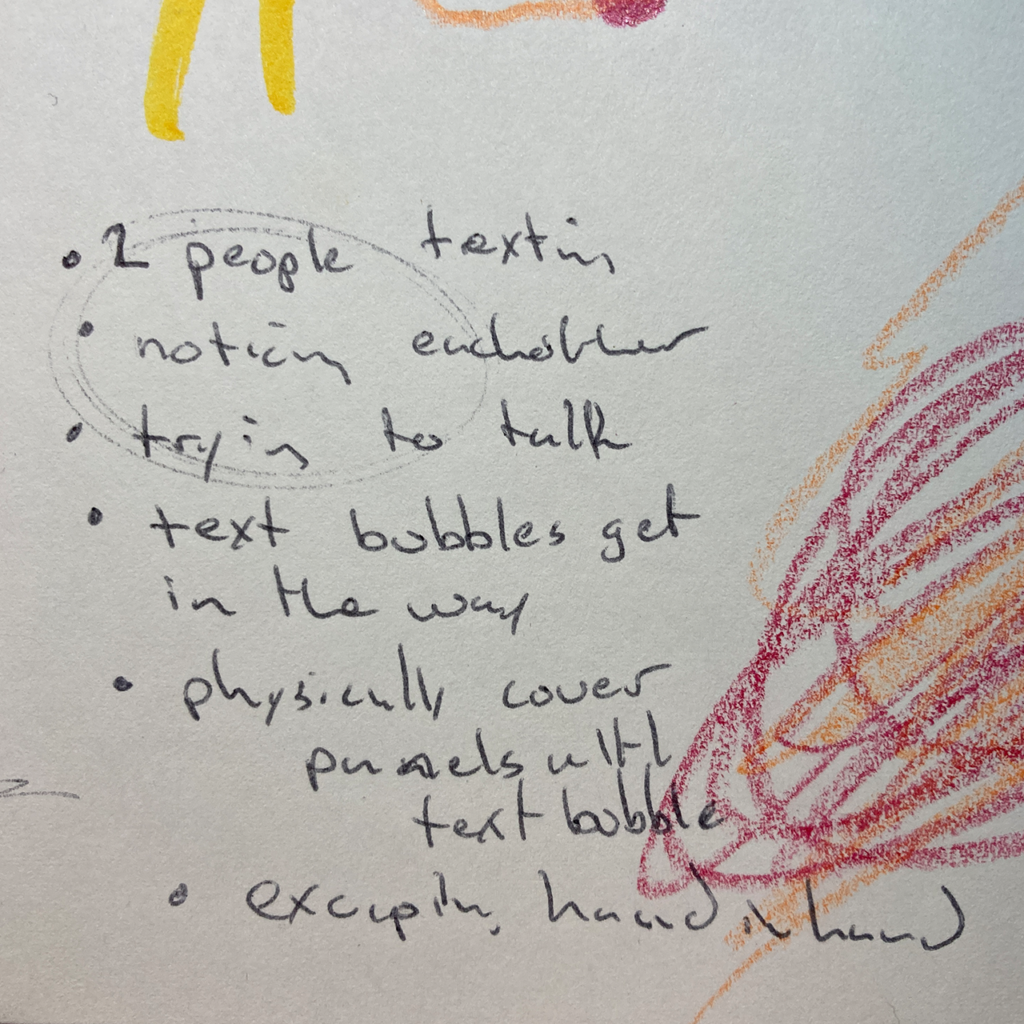 • 2 people textin
• noticin eachother
• tryin to talk
• text bubbles get
in the way
• physically cover
pannels until
text bubble
• excapin, hand in hand